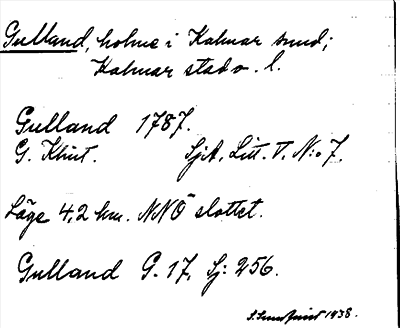 Gulland, holme i Kalmar sund;
Kalmar stad o. l.
Gulland 1787.
G. Klint. SjA, Litt. V, N:o 7.
Läge 4,2 km. NNÖ slottet.
Gulland G. 17, Sj: 256.
1938.